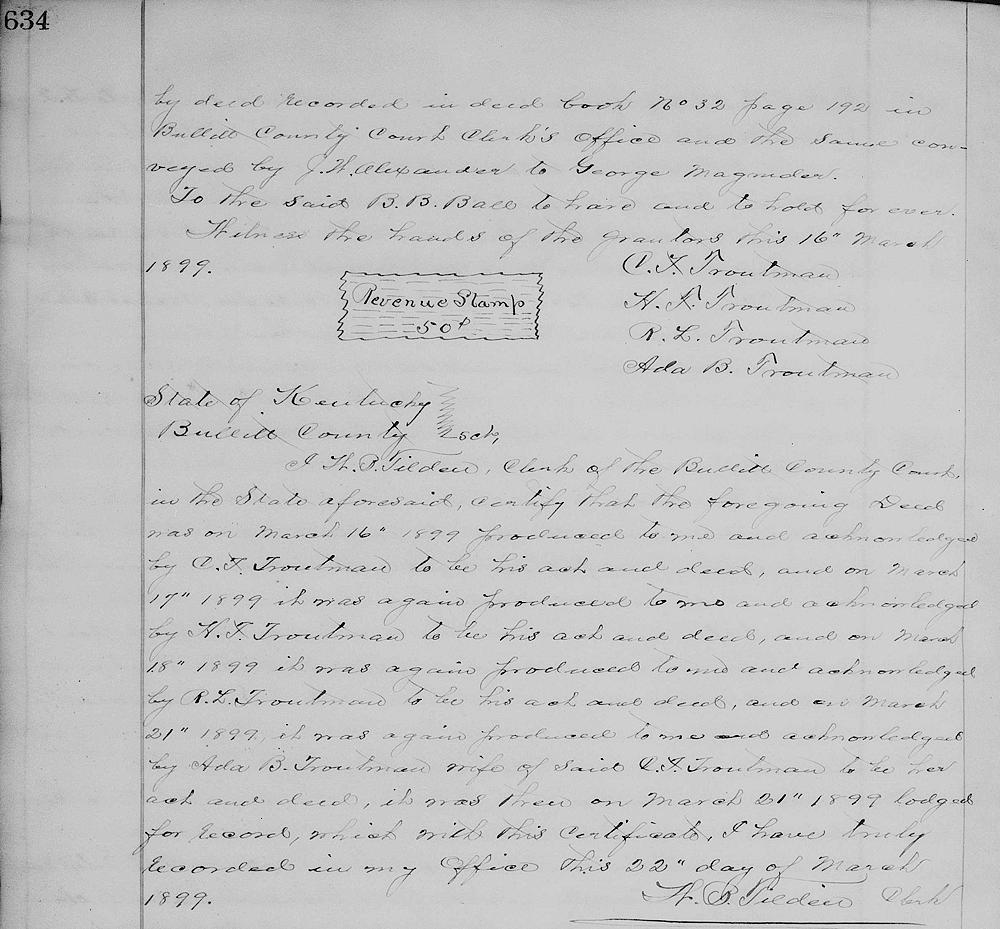 634
by deed recorded in deed book No 32 page 192 in
Bullitt County Court Clerk's Office and the same con-
veyed by J. W. Alexander to George Magruder.
To the said B. B. Ball to have and to hold for ever.
Witness the hands of the grantors this 16" March
1899.
C. F. Troutman
Revenue Stamp
50¢
H. F. Troutman
R. L. Troutman
Ada B. Troutman
State of Kentucky
Bullitt County sct,
I W. B. Tilden, Clerk of the Bullitt County Court,
in the State aforesaid, certify that the foregoing Deed
was on March 16" 1899 produced to me and acknowledged
by C. F. Troutman to be his act and deed, and on March
17" 1899 it was again produced to me and acknowledged
by H. F. Troutman to be his act and deed, and on March
18" 1899 it was again produced to me and acknowledged
by R. L. Troutman to be his act and deed, and on March
21" 1899, it was again produced to me and acknowledged
by Ada B. Troutman wife of said C. F. Troutman to be her
act and deed, it was then on March 21" 1899 lodged
for record, which with this certificate, I have truly
recorded in my Office this 22" day of March
1899.
W. B. Tilden Clerk